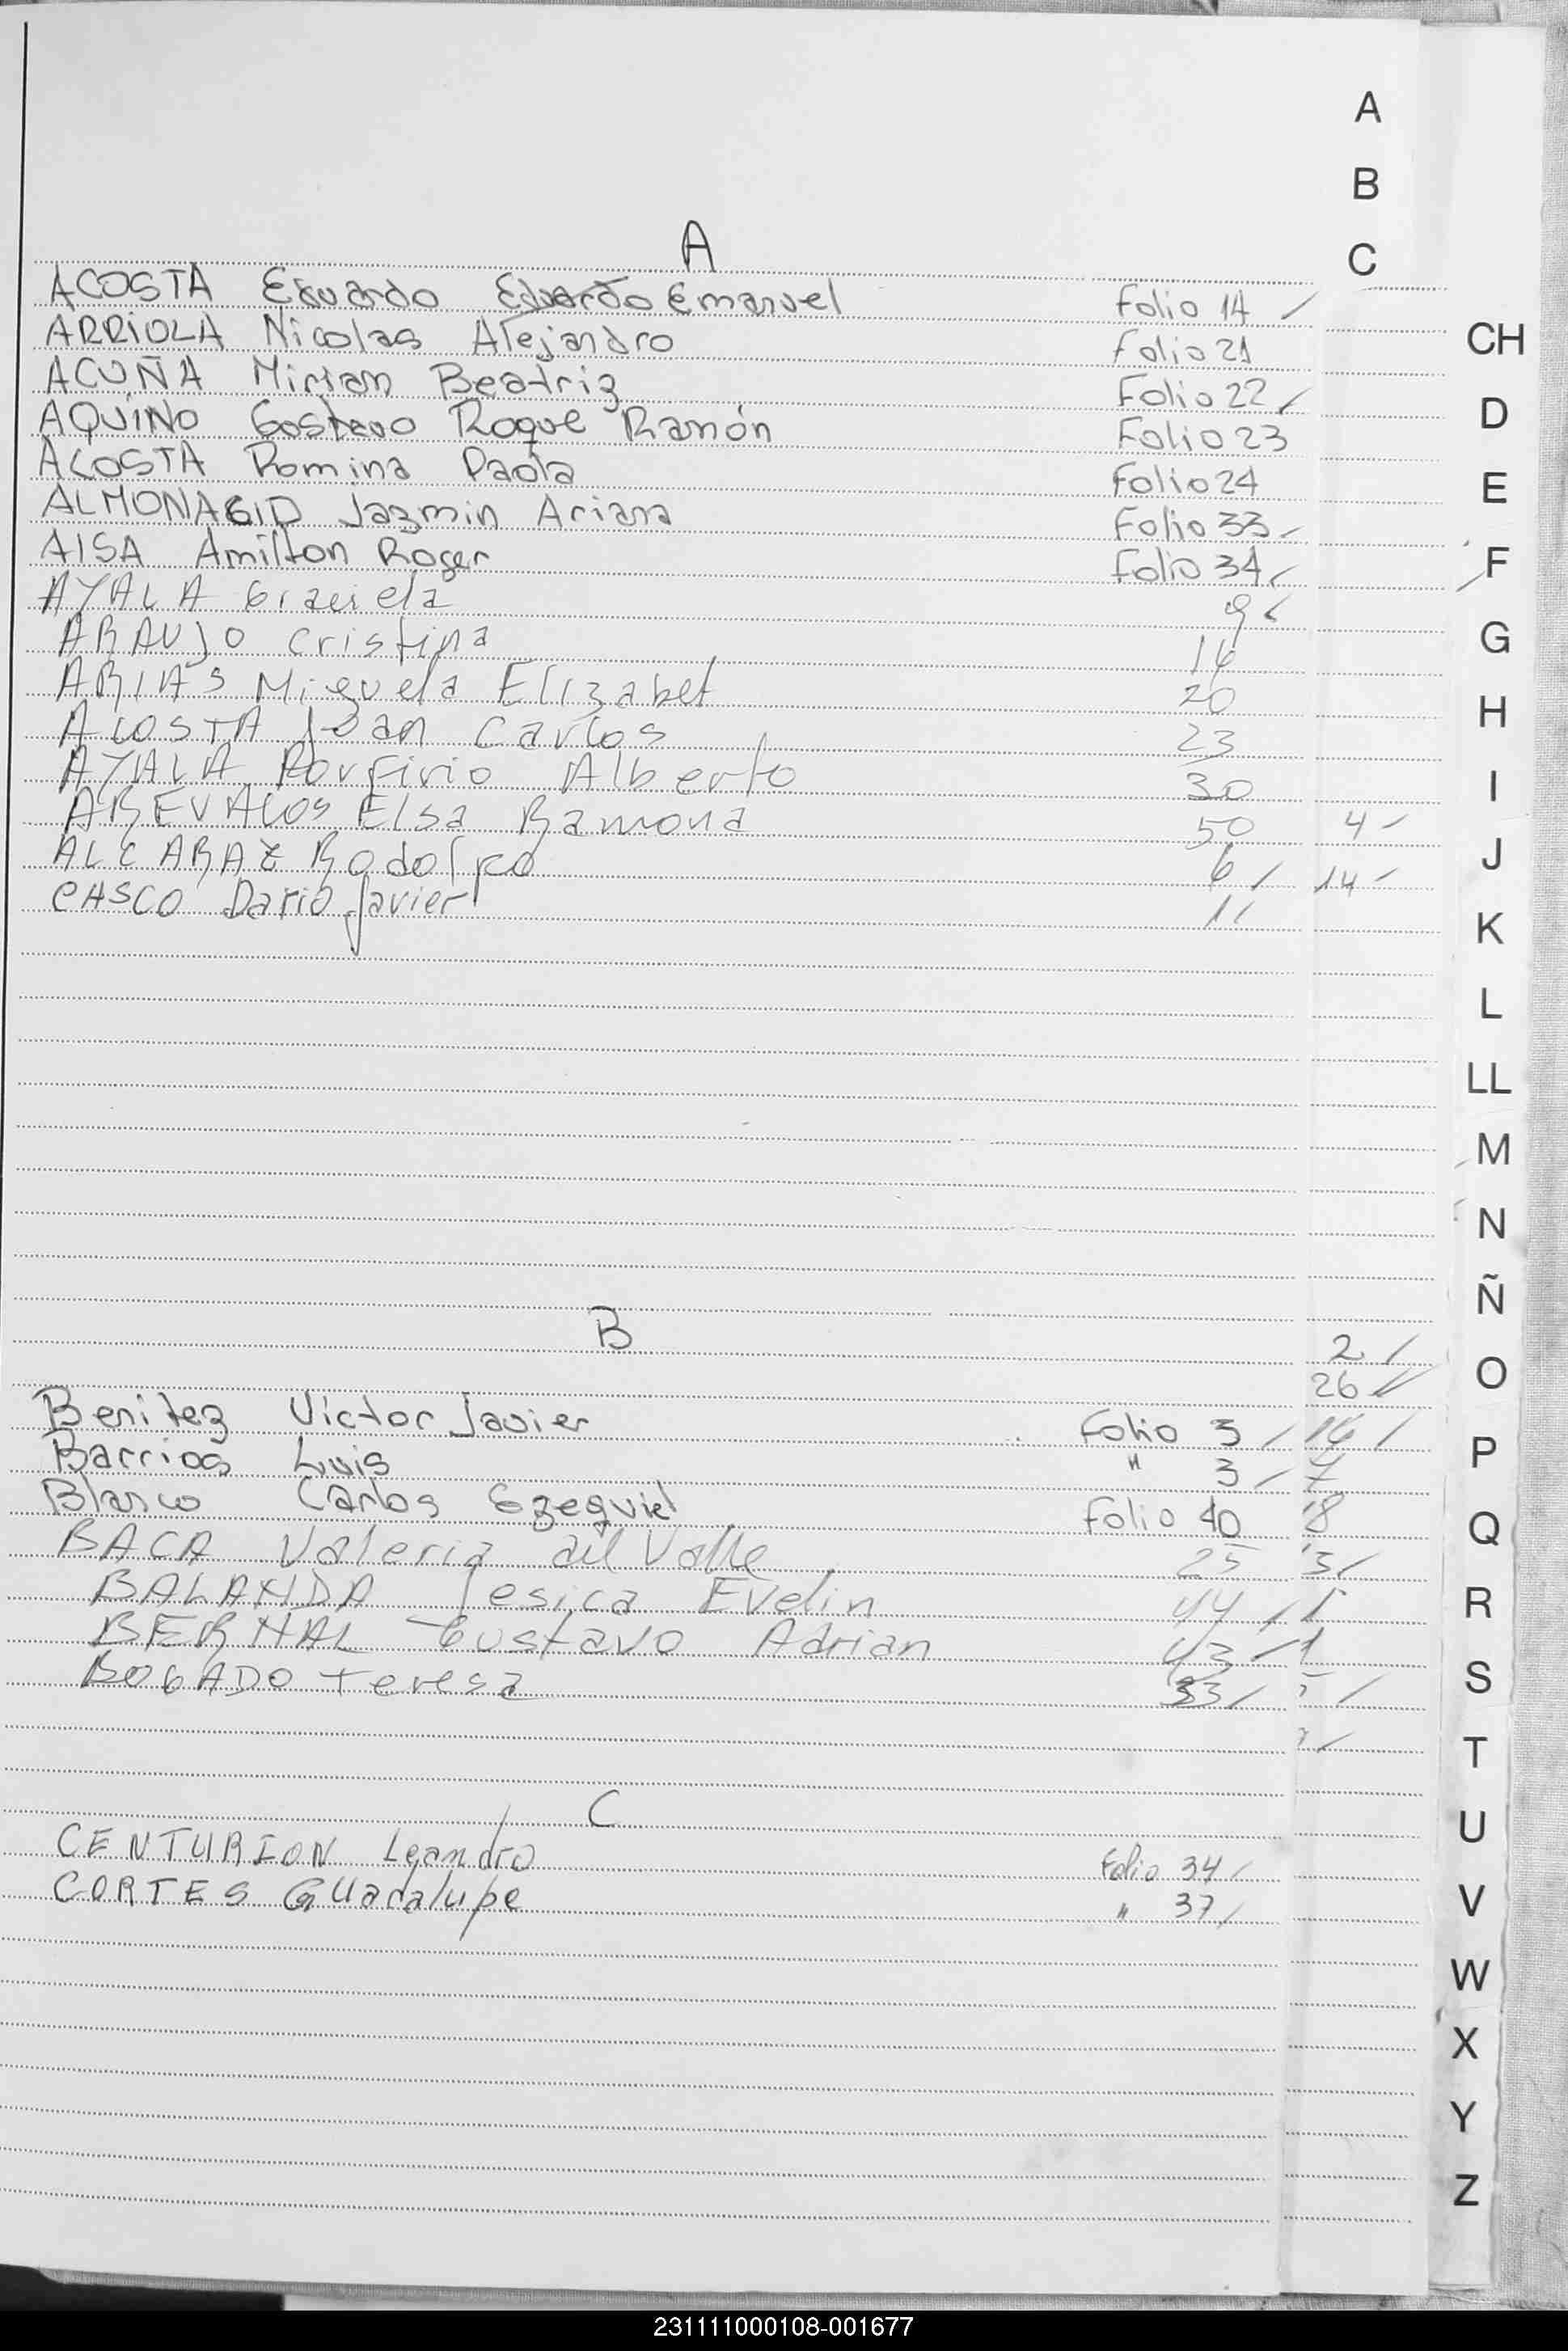 A
B
C
A
ACOSTA Eduardo Eduardo Emanuel Folio 14
ARRIOLA Nicolas Alejandro Folio 21
ACUÑA Miriam Beatriz Folio 22
AQUINO Gustavo Roque Ramón Folio 23
ACOSTA Romina Paola Folio 24
ALMONACID Jazmin Ariana Folio 33
AISA Amilton Roger Folio 34
AYALA Graciela 9
ARAUJO Cristina 16
ARIAS Miguela Elizabet 20
ACOSTA Juan Carlos 23
AYALA Porfirio Alberto 30
AREVALOS Elsa Ramona 50 4
ALCARAZ Rodolfo 6 14
CASCO Dario Javier 11
B
2
26
Benitez Victor Javier Folio 3 16
Barrios Luis " 3
Blanco Carlos Ezequiel Folio 40 8
BACA Valeria del Valle 25 3
BALANDA Jesica Evelin 44 1
BERNAL Gustavo Adrian 43 1
BOGADO Teresa 33
C
CENTURION Leandro Folio 34
CORTES Guadalupe " 37
CH
D
E
F
G
H
I
J
K
L
LL
M
N
Ñ
O
P
Q
R
S
T
U
V
W
X
Y
Z
231111000108-001677